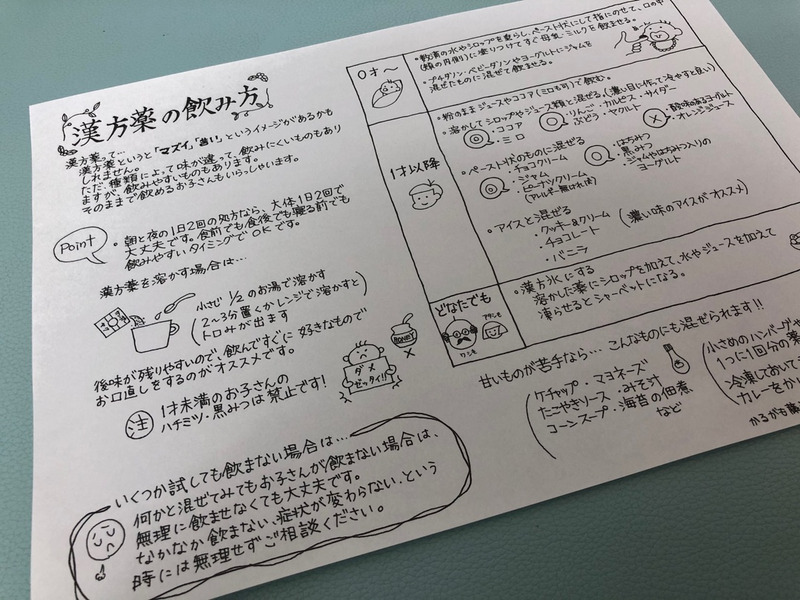 漢方薬の飲み方
漢方薬って…
漢方薬というと「マズイ」「苦い」というイメージがあるかも
しれません。
ただ、種類によって味が違って、飲みにくいものもあり
ますが、飲みやすいものもあります。
そのままで飲めるお子さんもいらっしゃいます。
Point
・朝と夜の1日2回の処方なら、大体1日2回で
大丈夫です。食前でも食後でも寝る前でも
飲みやすいタイミングでOKです。
漢方薬を溶かす場合は…
小さじ1/2のお湯で溶かす
(2~3分置くかレンジで溶かすと)
トロみが出ます
後味が残りやすいので、飲んですぐに好きなもので
お口直しをするのがオススメです。
HONEY
×
ダメ
ゼッタイ!!
注
1才未満のお子さんの
ハチミツ・黒みつは禁止です!
いくつか試しても飲まない場合は…
何かと混ぜてみてもお子さんが飲まない場合は、
無理に飲ませなくても大丈夫です。
なかなか飲まない、症状が変わらない、という
時には無理せずご相談ください。
0才~
・数滴の水やシロップを垂らし、ペースト状にして指にのせて、口の中
(頬の内側)に塗りつけてすぐ母乳・ミルクを飲ませる。
・プルダノン・ベビーダノンやヨーグルトにジャムを
混ぜたものに混ぜて飲ませる。
1才以降
・粉のままジュースやココア(ミロも可)で飲む。
・溶かしてシロップやジュース類と混ぜる。(濃い目に作って冷やすと良い)
◎・ココア
・ミロ
○・りんご・カルピス・サイダー
ぶどう・ヤクルト
×・酸味のあるヨーグルト
・オレンジジュース
・ペースト状のものに混ぜる
◎・チョコクリーム
・ジャム
・ピーナックリーム
(アレルギー無ければ)
○・はちみつ
・黒みつ
・ジャムやはちみつ入りの
ヨーグルト
・アイスと混ぜる
・クッキー&クリーム
・チョコレート
・バニラ
(濃い味のアイスがオススメ)
どなたでも
ワシも
アタシも
・漢方氷にする
溶かした薬にシロップを加えて、水やジュースを加えて
凍らせるとシャーベットになる。
甘いものが苦手なら…こんなものにも混ぜられます!!
ケチャップ・マヨネーズ
たこやきソース・みそ汁
コーンスープ・海苔の佃煮
など
小さめのハンバーグ
1つに1回分の薬
冷凍しておいて
カレーをか
かるがも